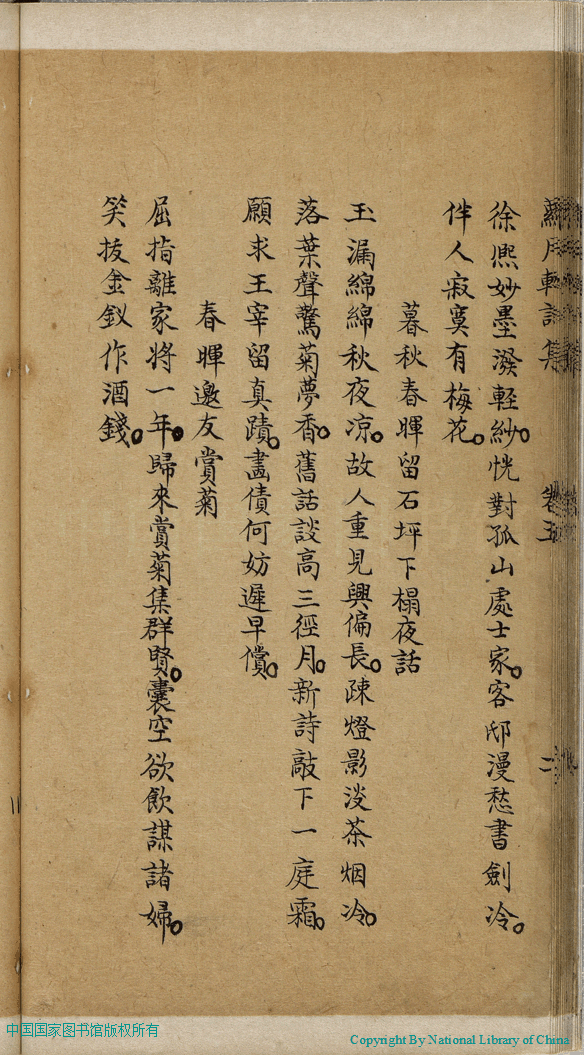 月軒詩集 卷五 二
徐熈妙墨潑輕紗。恍對孤山處士家。客邸漫愁書劍冷。
伴人寂寞有梅花。
暮秋春暉留石坪下榻夜話
玉漏綿綿秋夜凉。故人重見興偏長。疎燈影淡茶烟冷。
落葉聲驚菊夢香。舊話談高三徑月。新詩敲下一庭霜。
願求王宰留真蹟。畫債何妨遲早償。
春暉邀友賞菊
屈指離家將一年。歸來賞菊集群賢。囊空欲飲謀諸婦。
笑拔金釵作酒錢。
中国国家图书馆版权所有
Copyright By National Library of China